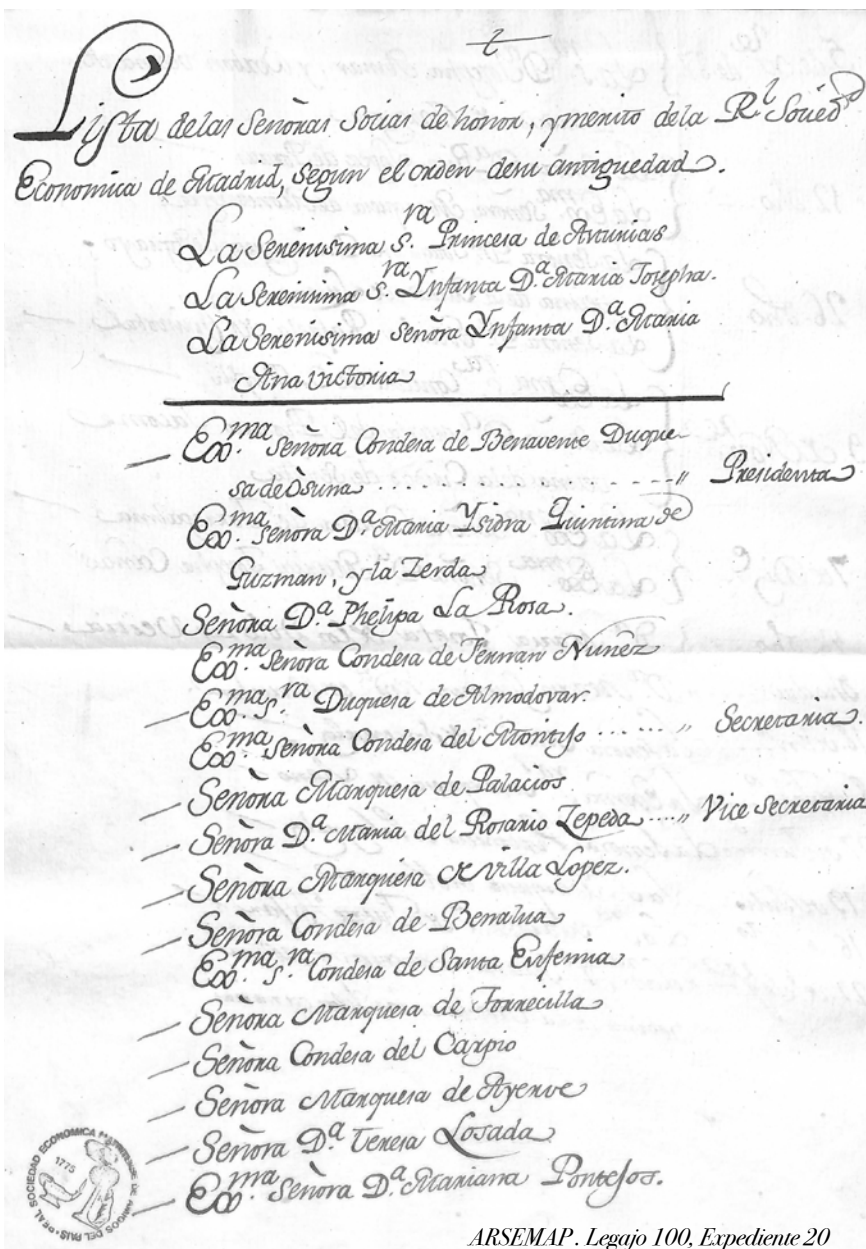 Lista delas Señoras Socias de honor, y merito dela Rl. Socied.d
Economica de Madrid, segun el orden desu antiguedad.
La Serenisima S.ra Princesa de Asturias
La Serenisima S.ra Ynfanta D.a Maria Josepha.
La Serenisima Señora Ynfanta D.a Maria
Ana Victoria
Exma. Señora Condesa de Benavente Duque-
sa de Osuna . . . . . . . . . . - - - - - " Presidenta
Exma. Señora D.a Maria Ysidra Quintina de
Guzman, y la Zerda
Señora D.a Phelipa La Rosa.
Exma. Señora Condesa de Fernan Nuñez
Exma. S.ra Duquesa de Almodovar.
Exma. Señora Condesa del Montijo . . . . . . " Secretaria.
Señora Marquesa de Palacios
Señora D.a Maria del Rosario Zepeda . . . . " Vice Secretaria
Señora Marquesa de Villa Lopez.
Señora Condesa de Benalua
Exma. S.ra Condesa de Santa Eufemia
Señora Marquesa de Torrecilla
Señora Condesa del Carpio
Señora Marquesa de Ayerve
Señora D.a Teresa Losada
Exma. Señora D.a Mariana Pontejos.
REAL SOCIEDAD ECONOMICA MATRITENSE DE AMIGOS DEL PAIS
1775
ARSEMAP. Legajo 100, Expediente 20